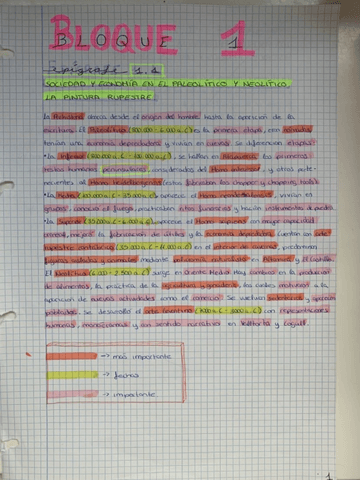 BLOQUE 1
BLOQUE
Epígrafe 1.1
SOCIEDAD Y ECONOMÍA EN EL PALEOLÍTICO Y NEOLÍTICO.
LA PINTURA RUPESTRE.
La Prehistoria abarca desde el origen del hombre hasta la aparición de la
escritura. El Paleolítico es la primera etapa, eran nómadas
tenían una economía depredadora y vivían en cuevas. Se diferencian etapas:
• Inferior se hallan en Atapuerca los primeros
restos humanos considerados del Homo y otros perte-
necientes al Homo
• Medio aparece el Homo vivían en
grupos, conocía el fuego, practicaban ritos funerarios y hacían instrumentos de piedra.
• Superior aparece el Homo sapiens con mayor capacidad
craneal, mejora la fabricación de útiles y la economía depredadora. Cuentan con arte
rupestre cantábrico en el interior de cuevas, predominan
figuras aisladas y animales mediante policromía naturalista en Altamira y El Castillo.
El Neolítico surge en Oriente Medio. Hay cambios en la producción
de alimentos, la práctica de la agricultura y ganadería, los cuales motivan la
aparición de nuevas actividades como el comercio. Se vuelven sedentarios y aparecen
poblados. Se desarrolla el arte levantino con representaciones
humanas, monocromas y con sentido narrativo en Valltorta y Cogul.
→ más importante
→ fechas
→ importante
1